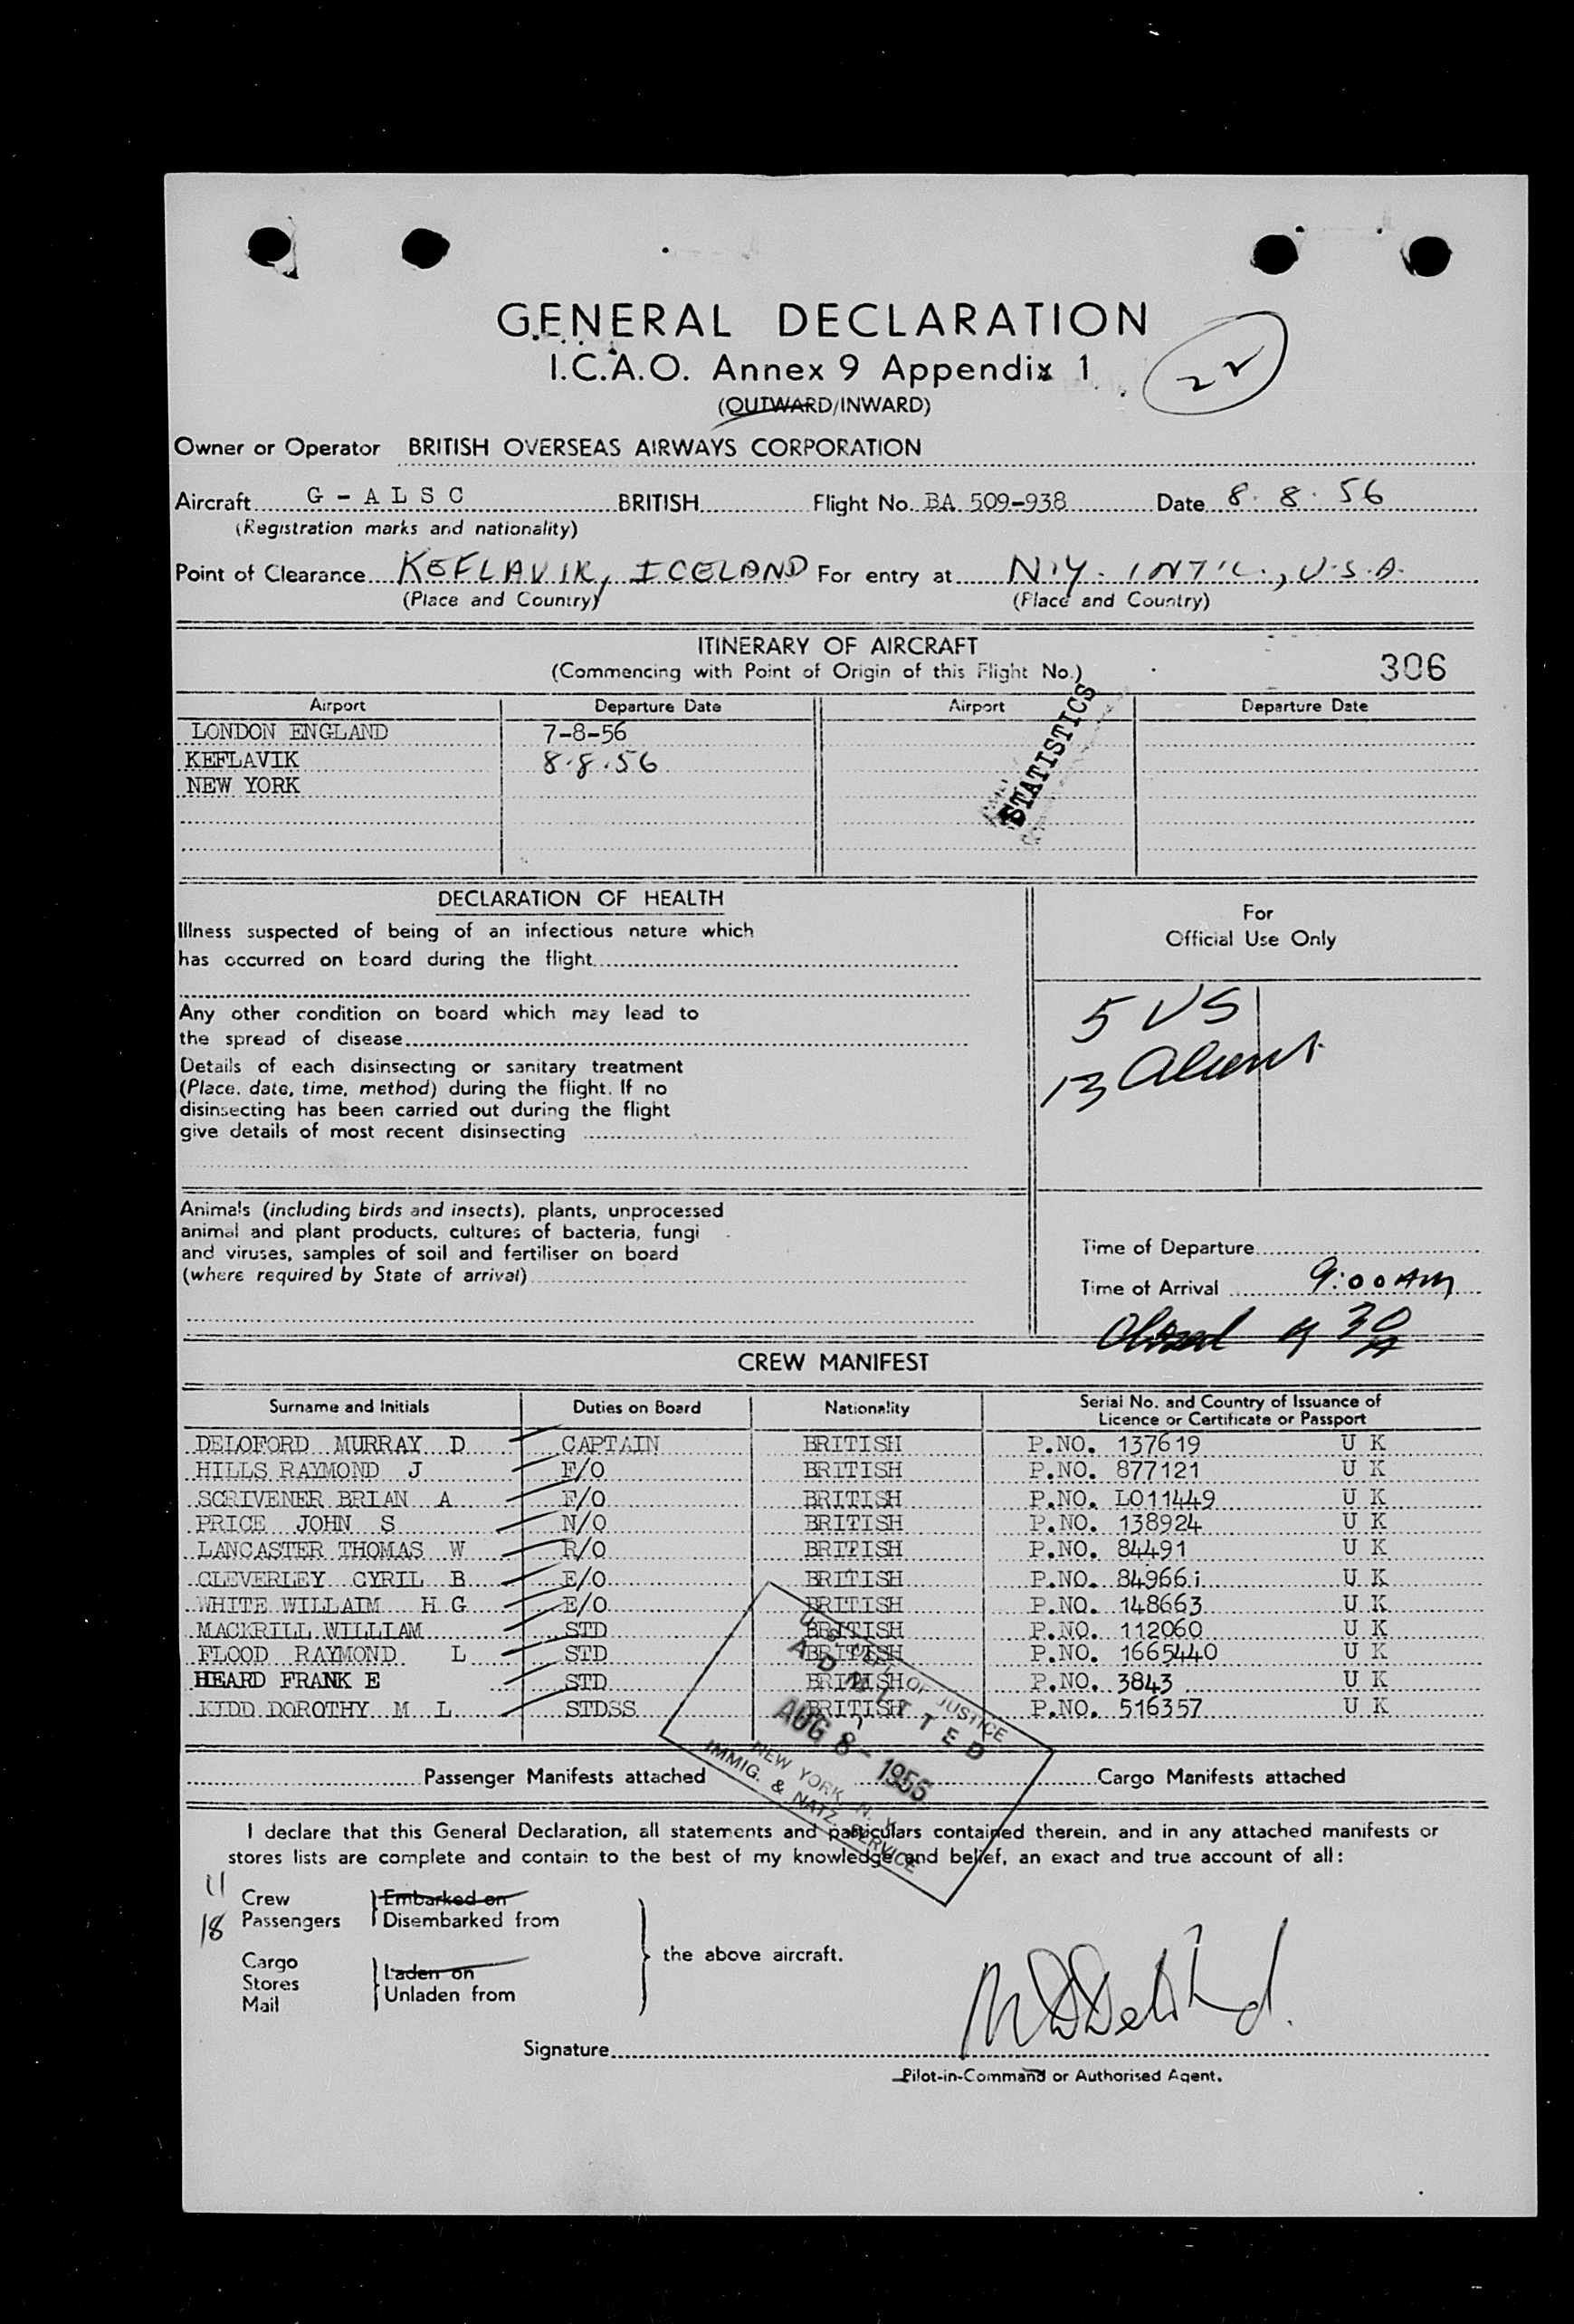 GENERAL DECLARATION
I.C.A.O. Annex 9 Appendix 1
22
(OUTWARD/INWARD)
Owner or Operator BRITISH OVERSEAS AIRWAYS CORPORATION
Aircraft G - A L S C BRITISH Flight No. BA 509-938 Date 8. 8. 56
(Registration marks and nationality)
Point of Clearance KEFLAVIK, ICELAND For entry at N.Y. INT'L., U.S.A.
(Place and Country) (Place and Country)
ITINERARY OF AIRCRAFT
(Commencing with Point of Origin of this Flight No.) 306
Airport Departure Date Airport Departure Date
LONDON ENGLAND 7-8-56
KEFLAVIK 8.8.56
NEW YORK
STATISTICS
DECLARATION OF HEALTH
Illness suspected of being of an infectious nature which
has occurred on board during the flight
Any other condition on board which may lead to
the spread of disease
Details of each disinsecting or sanitary treatment
(Place, date, time, method) during the flight. If no
disinsecting has been carried out during the flight
give details of most recent disinsecting
For
Official Use Only
5 US
13 Aliens
Animals (including birds and insects), plants, unprocessed
animal and plant products, cultures of bacteria, fungi
and viruses, samples of soil and fertiliser on board
(where required by State of arrival)
Time of Departure
Time of Arrival 9:00 AM
30
CREW MANIFEST
Surname and Initials Duties on Board Nationality Serial No. and Country of Issuance of
Licence or Certificate or Passport
DELOFORD MURRAY D CAPTAIN BRITISH P.NO. 137619 U K
HILLS RAYMOND J F/O BRITISH P.NO. 877121 U K
SCRIVENER BRIAN A F/O BRITISH P.NO. LO11449 U K
PRICE JOHN S N/O BRITISH P.NO. 138924 U K
LANCASTER THOMAS W R/O BRITISH P.NO. 84491 U K
CLEVERLEY CYRIL B E/O BRITISH P.NO. 84966i U K
WHITE WILLAIM H.G E/O BRITISH P.NO. 148663 U K
MACKRILL WILLIAM STD BRITISH P.NO. 112060 U K
FLOOD RAYMOND L STD BRITISH P.NO. 1665440 U K
HEARD FRANK E STD BRITISH P.NO. 3843 U K
KIDD DOROTHY M L STDSS BRITISH P.NO. 516357 U K
OF JUSTICE
ADMITTED
AUG 8 - 1956
NEW YORK, N. Y.
IMMIG. & NATZ. SERVICE
Passenger Manifests attached Cargo Manifests attached
I declare that this General Declaration, all statements and particulars contained therein, and in any attached manifests or
stores lists are complete and contain to the best of my knowledge and belief, an exact and true account of all:
11 Crew Embarked on
18 Passengers Disembarked from
the above aircraft.
Cargo
Stores
Mail
Laden on
Unladen from
Signature
Pilot-in-Command or Authorised Agent.